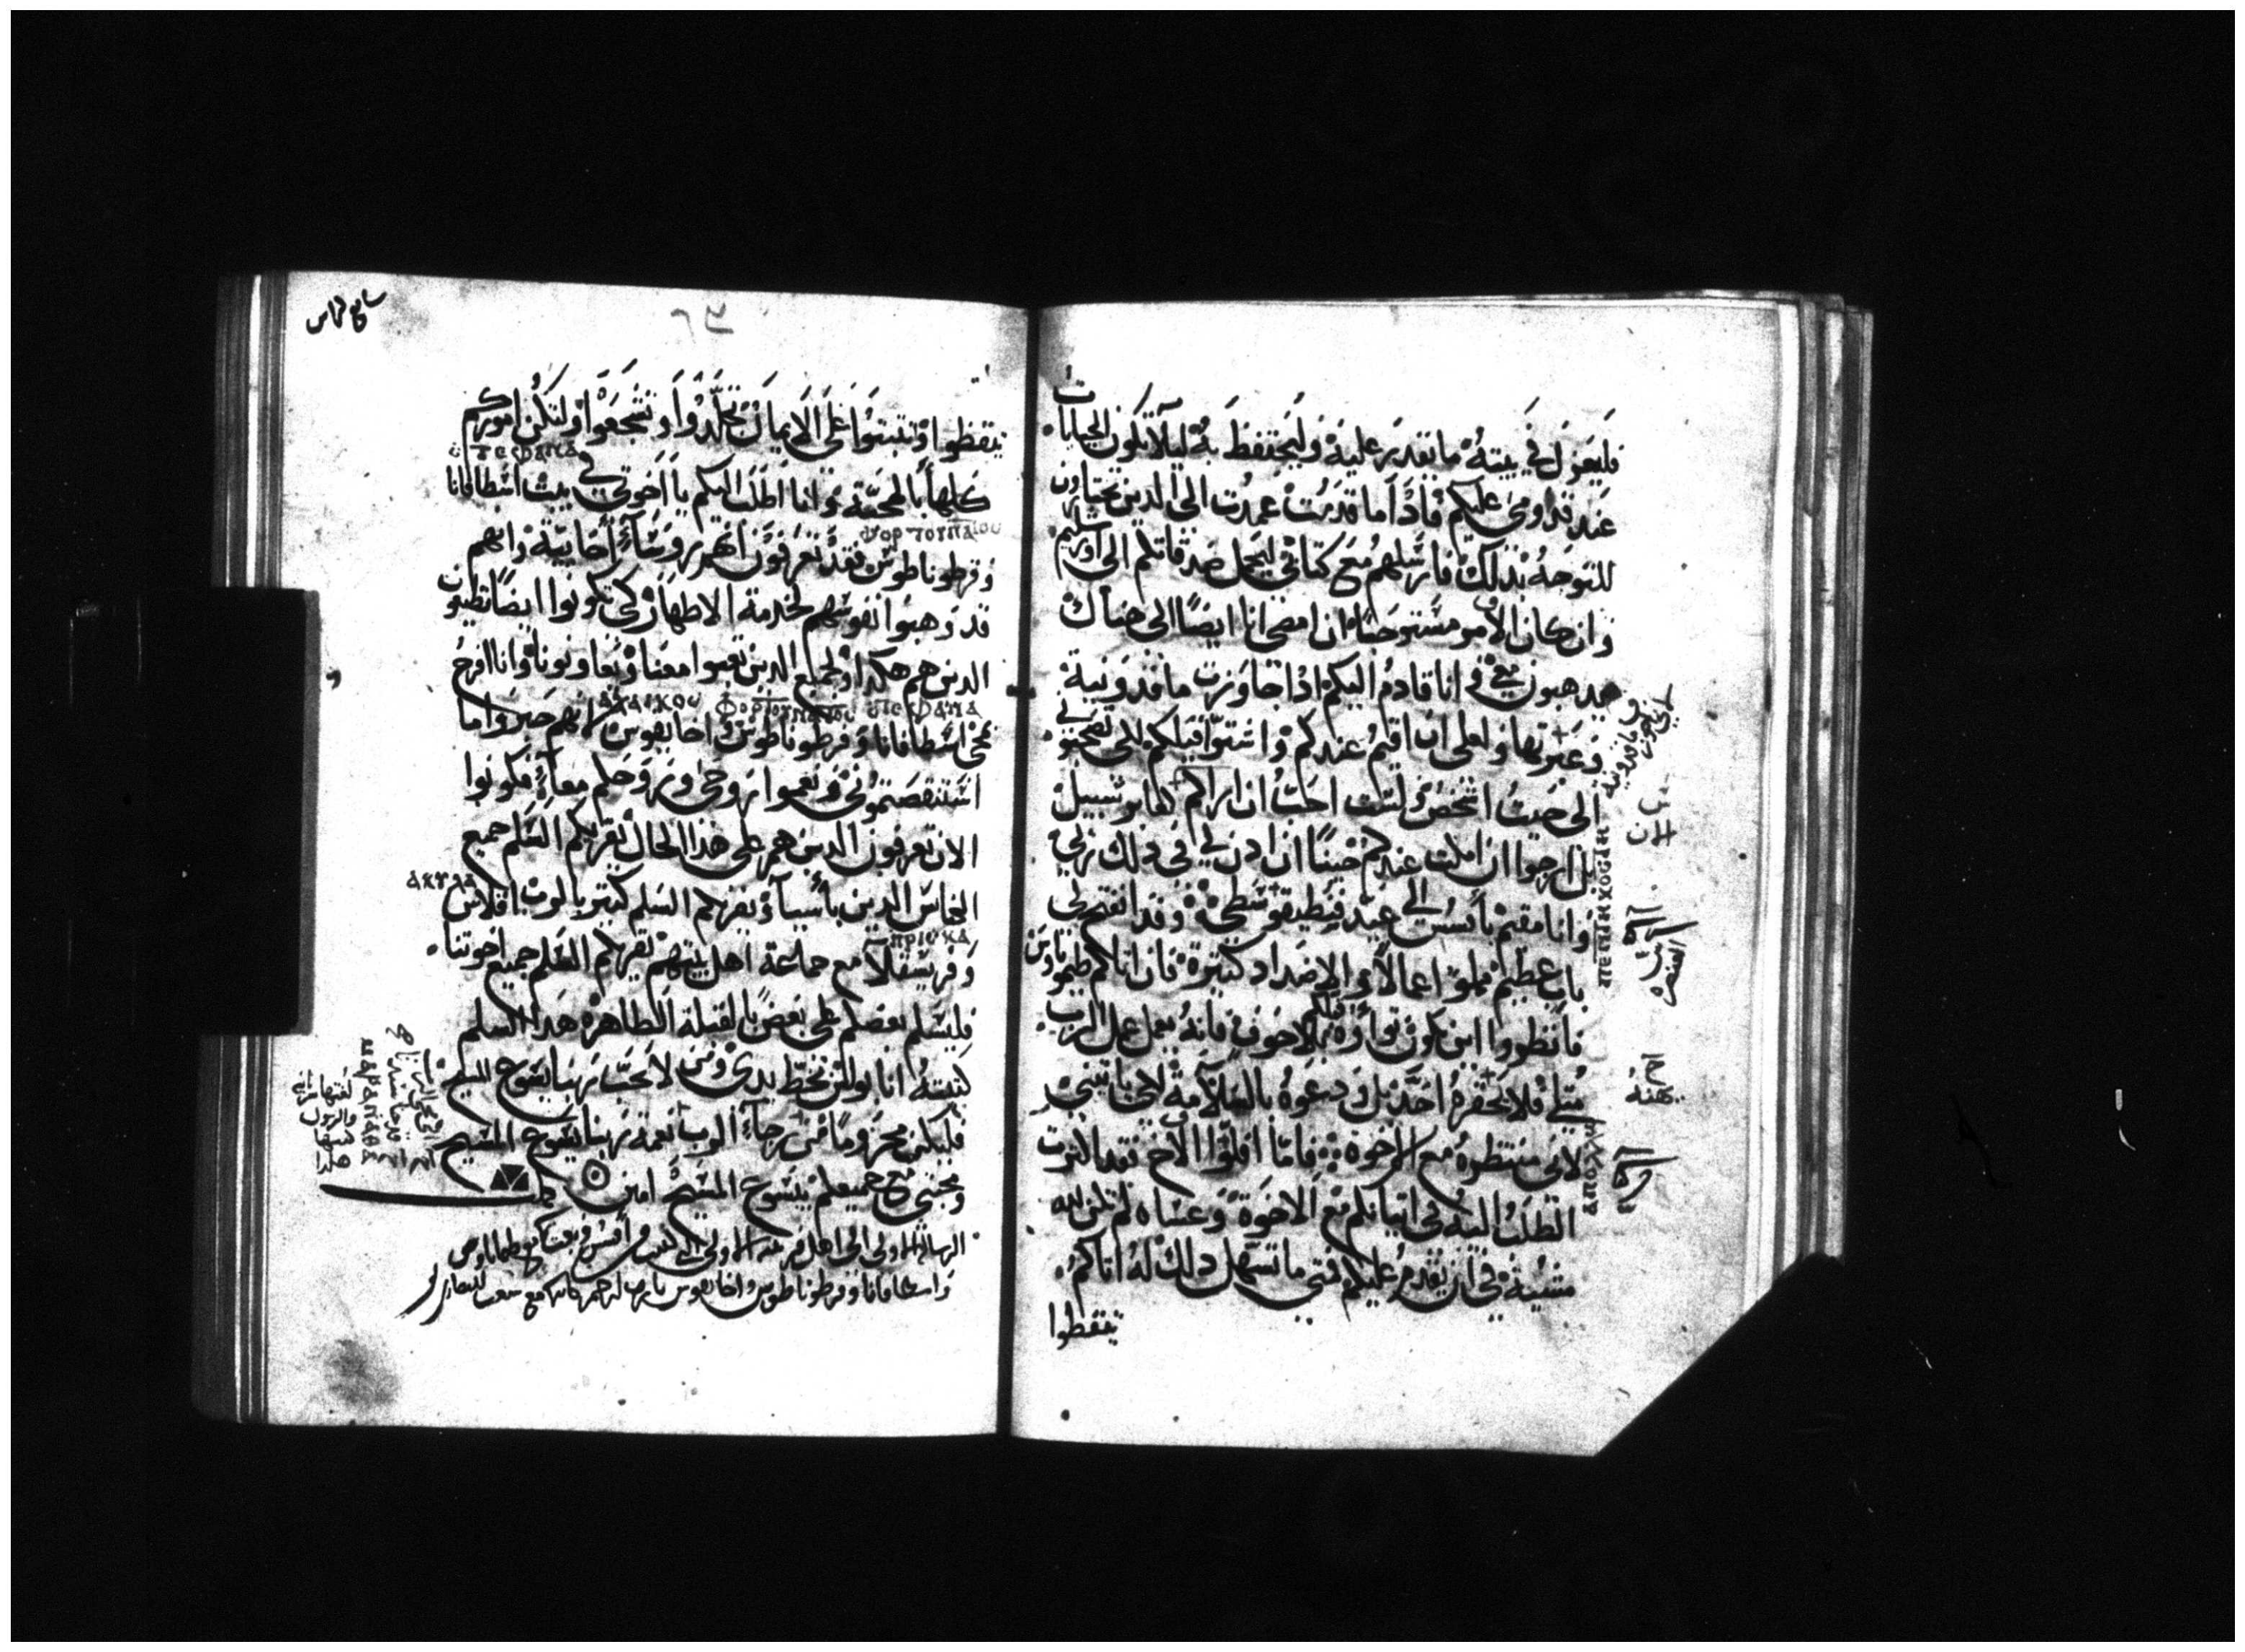 فليعزل في بيته ما تقدر عليه وليحتفظ به ليلا تكون الجبايات
عند قدومي عليكم فاذا ما قدمت عمدت الى الدين تختارون
للتوجه بذلك فارسلهم مع كتابي ليحمل صدقاتكم الى اورشليم
وان كان الامر مستوجبا ان امضي انا ايضا الى هناك
يذهبون معي وانا قادم اليكم اذا جاوزت ماقدونية
وعبرتها ولعلي ان اقيم عندكم واشتوا قبلكم لكي تصحبوني
الى حيث اشخص ولست احب ان اراكم كعابر سبيل
بل ارجوا ان امكث عندكم حينا ان ادن لي في ذلك ربي
وانا مقيم بأفسس الى عيد فنطيقوسطي وقد انفتح لي
باب عظيم مملوا اعمالا والاضداد كثيرة فان اتاكم طيموتاوس
فانظروا ان يكون توأوه قبلكم بلا خوف فانه يعمل عمل الرب
مثلي فلا يحقره احد بل ودعوه بالسلامة لكي ياتيني
لاني منتظره مع الاخوة فاما افلوا الاخ فقد اكثرت
الطلب اليه في اتيانكم مع الاخوة وعساه لم تكن له
مشيئة في ان يقدم عليكم فمتى ما تسهل ذلك له اتاكم
تيقظوا
ⲡⲉⲛⲧⲏⲕⲟⲥⲧⲏ
ⲁⲡⲟⲗⲗⲱ
تيقظوا وتثبتوا على الايمان تجلدوا وتشجعوا ولتكن اموركم
ⲥⲧⲉⲫⲁⲛⲁ
كلها بالمحبة وانا اطلب اليكم يا اخوتي في بيت اسطافانا
ⲫⲟⲣⲧⲟⲩⲛⲁⲧⲟⲩ
وفرطوناطوس فقد تعرفون انهم رؤساء أخائية وانهم
قد وهبوا نفوسهم لخدمة الاطهار كي تكونوا ايضا تطيعون
الدين هم هكدا ولجميع الدين تعبوا معنا وتعاونونا وانا افرح
ⲥⲧⲉⲫⲁⲛⲁ ⲫⲟⲣⲧⲟⲩⲛⲁⲧⲟⲩ ⲁⲭⲁⲓⲕⲟⲩ
بمجي اسطافانا وفرطوناطوس واخايقوس لانهم جبروا ما
استنقصتموني ونعموا روحي وروحكم معا فكونوا
الان تعرفون الدين هم على هذا الحال يقريكم السلم جميع
ⲁⲕⲩⲗⲁ
الكنائس الدين بأسيا ويقريكم السلم كثير بالرب اقلاس
ⲡⲣⲓⲥⲕⲁ
وفريسقلا مع جماعة اهل بيتهم يقريكم السلم جميع اخوتنا
فليسلم بعضكم على بعض بالقبلة الطاهرة هذا السلم
كتبته انا بولس بخط يدي ومن لا يحب ربنا يسوع المسيح
فليكن محروما مرن رجاء الرب نعمة ربنا يسوع المسيح
ومحبتي مع جميعكم بيسوع المسيح امين
الرسالة الاولى الى اهل قرنتيه كتبت من أفسس وبعث بها مع طيماتاوس
واسطافانا وفرطوناطوس واخايقوس